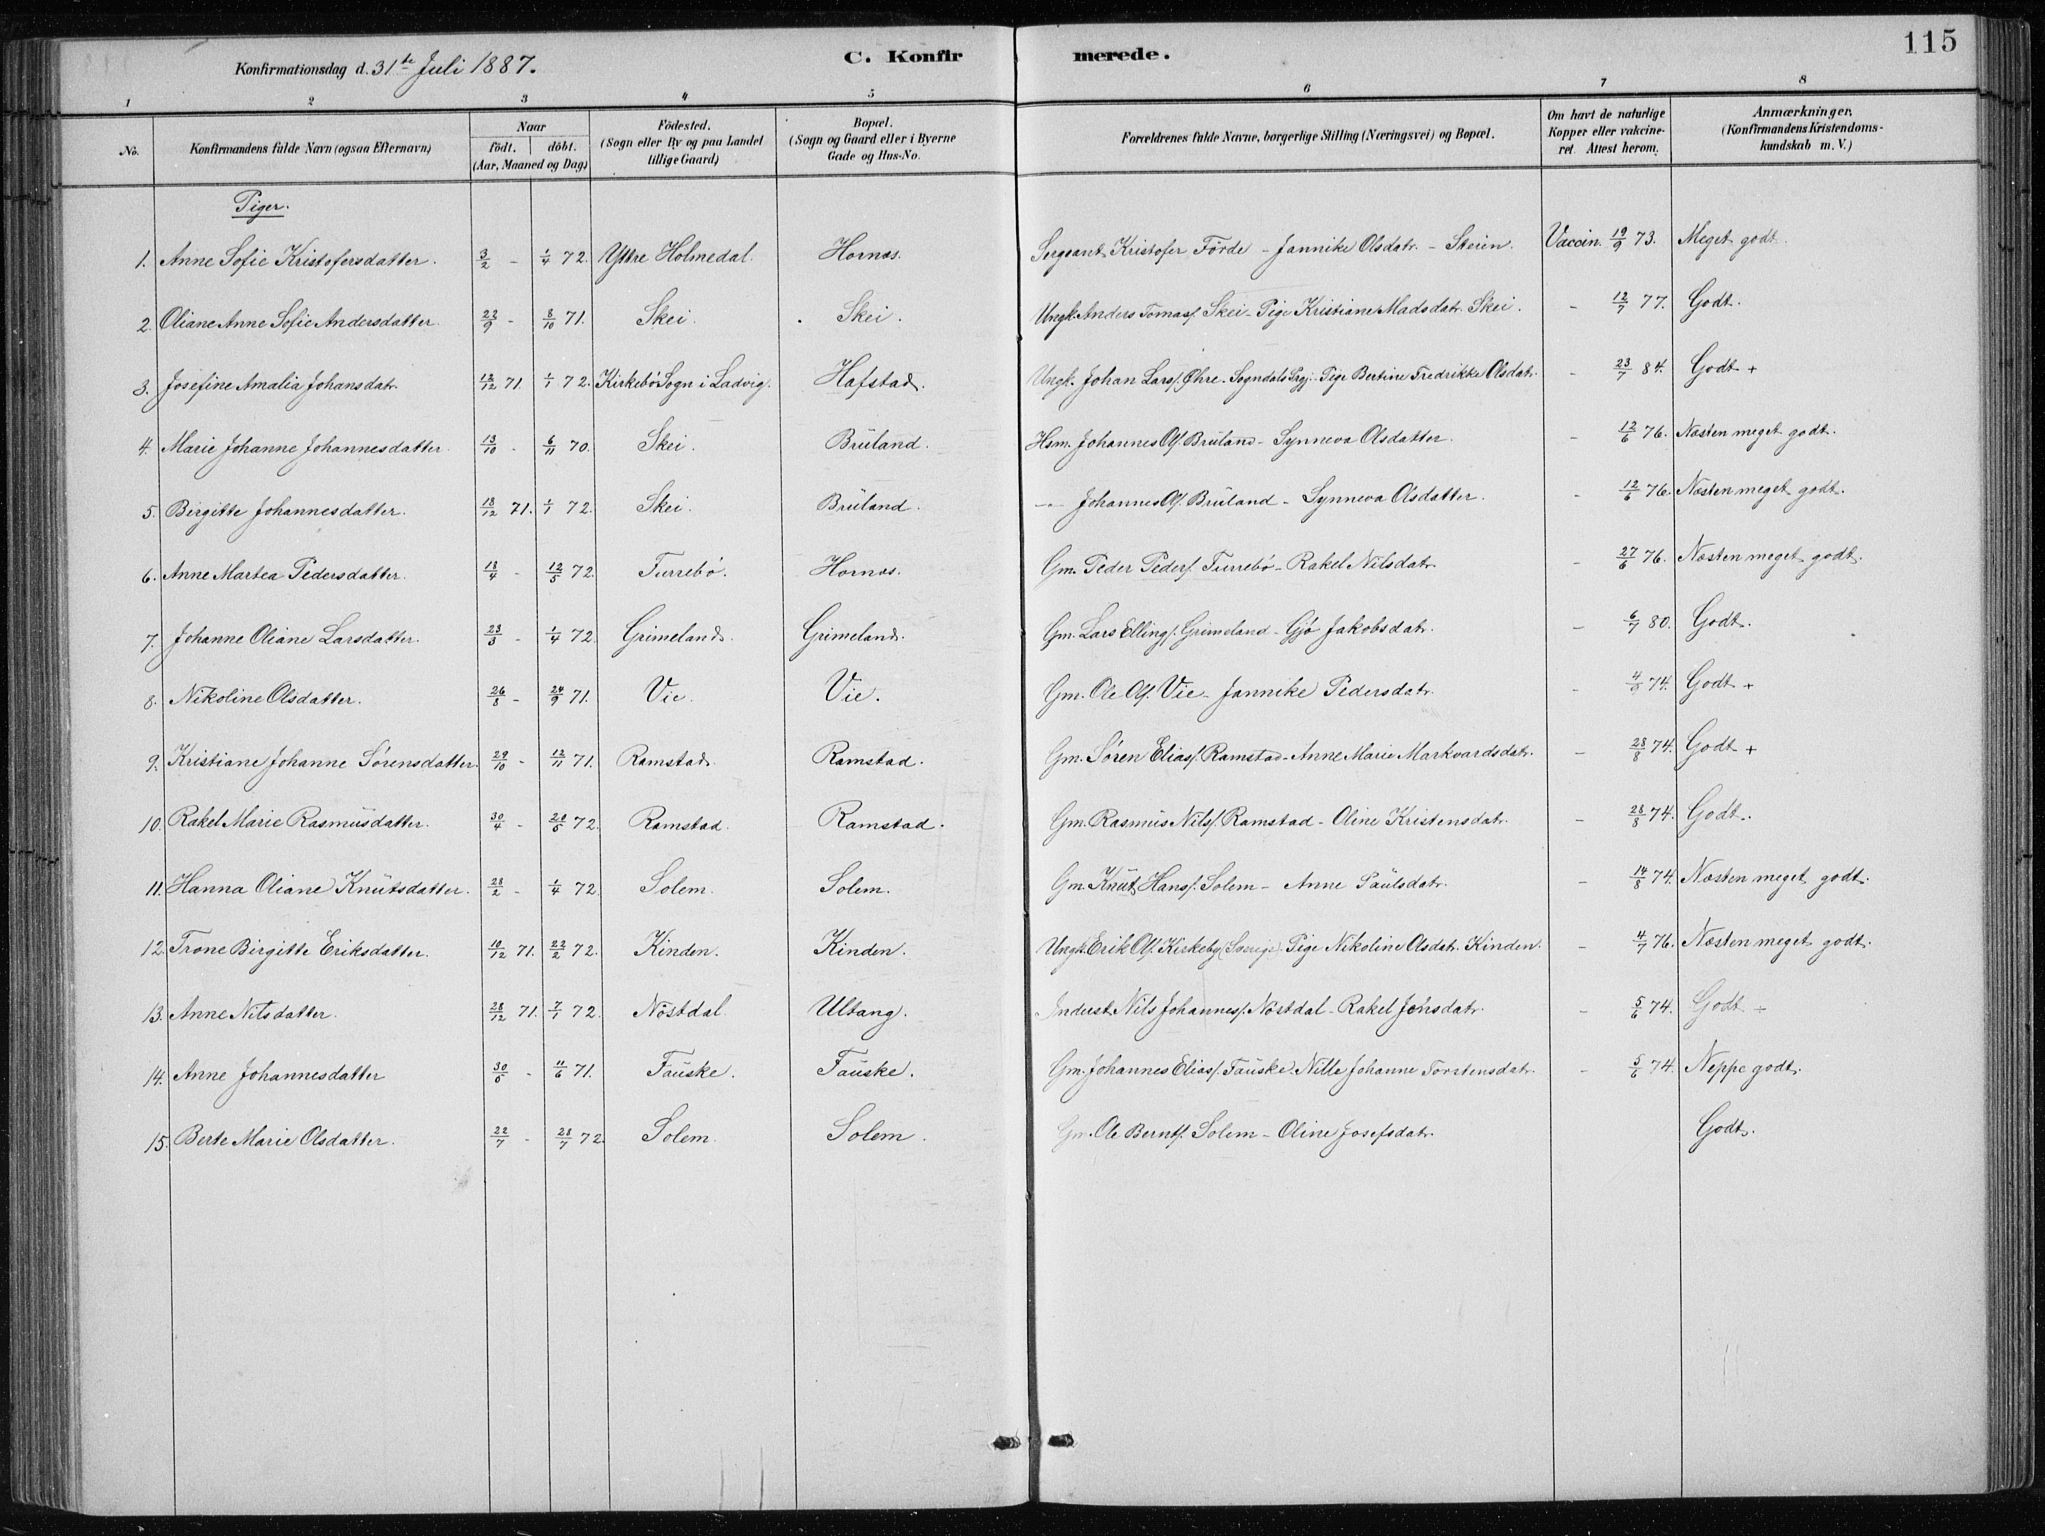 115
Konfirmationsdag d. 31te Juli 1887.
C. Konfirmerede.
1 2 3 4 5 6 7 8
No.
Konfirmandens fulde Navn (ogsaa Efternavn)
Naar
födt. döbt.
(Aar, Maaned og Dag)
Födested.
(Sogn eller By og paa Landet
tillige Gaard)
Bopæl.
(Sogn og Gaard eller i Byerne
Gade og Hus-No.
Forældrenes fulde Navne, borgerlige Stilling (Næringsvei) og Bopæl.
Om havt de naturlige
Kopper eller vakcine-
ret. Attest herom.
Anmærkninger,
(Konfirmandens Kristendoms-
kundskab m. V.)
Piger.
1. Anne Sofie Kristofersdatter. 3/2 - 1/4 72. Yttre Holmedal. Hornæs. Sergeant Kristofer Förde - Jannike Olsdatr. - Steien. Vaccin. 19/9 73. Meget godt.
2. Oliane Anne Sofie Andersdatter. 22/9 - 8/10 71. Skei. Skei. Ungk. Anders Tomass. Skei - Pige Kristiane Madsdatr. Skei. - 12/7 77. Godt.
3. Josefine Amalia Johansdatr. 12/12 71. 1/1 72. Kirkebö Sogn i Ladvig. Hafstad. Ungk. Johan Larss. Øhre - Sogndals Prgj. - Pige Bertine Fredrikke Olsdatr. - 23/7 84. Godt +
4. Marie Johanne Johannesdatter. 13/10 - 6/11 70. Skei. Brüland. Hsm. Johannes Ols. Brüland - Synneva Olsdatter. - 12/6 76. Næsten meget godt.
5. Birgitte Johannesdatter. 18/12 71. 1/1 72. Skei. Brüland. -"- Johannes Ols. Brüland - Synneva Olsdatter. - 12/6 76. Næsten meget godt.
6. Anne Martea Pedersdatter. 18/4 - 12/5 72. Furrebö. Hornæs. Gm. Peder Peders. Furrebö - Rakel Nilsdatr. - 27/6 76. Næsten meget godt.
7. Johanne Oliane Larsdatter. 23/3 - 1/4 72. Grimeland. Grimeland. Gm. Lars Ellings. Grimeland - Gjø Jakobsdatr. - 6/7 80. Godt.
8. Nikoline Olsdatter. 26/8 - 24/9 71. Vie. Vie. Gm. Ole Ols. Vie - Jannike Pedersdatr. - 74. Godt +
9. Kristiane Johanne Sørensdatter. 29/10 - 12/11 71. Ramstad. Ramstad. Gm. Søren Eliass. Ramstad - Anne Marie Markvardsdatr. - 28/8 74. Godt +
10. Rakel Marie Rasmusdatter. 30/4 - 20/5 72. Ramstad. Ramstad. Gm. Rasmus Nilss. Ramstad - Oline Kristensdatr. - 28/8 74. Godt.
11. Hanna Oliane Knütsdatter. 28/2 - 1/4 72. Solem. Solem. Gm. Knüt Hanss. Solem - Anne Paülsdatr. - 14/8 74. Næsten meget godt.
12. Trone Birgitte Eriksdatter. 10/12 71. 22/2 72. Kinden. Kinden. Ungk. Erik Ols. Kirkeby (Sverige) Pige Nikoline Olsdatr. Kinden. - 4/7 76. Næsten meget godt.
13. Anne Nilsdatter. 28/12 71. 7/1 72. Nöstdal. Ultang. Inderst Nils Johanness. Nöstdal - Rakel Jonsdatr. - 5/6 74. Godt ÷
14. Anne Johannesdatter 30/5 - 11/6 71. Faüske. Faüske. Gm. Johannes Eliass. Faüske. Nille Johanne Torstensdatr. - 5/6 74. Neppe godt.
15. Berte Marie Olsdatter. 22/7 - 28/7 72. Solem. Solem. Gm. Ole Bernts. Solem - Oline Josefsdatr. Godt.